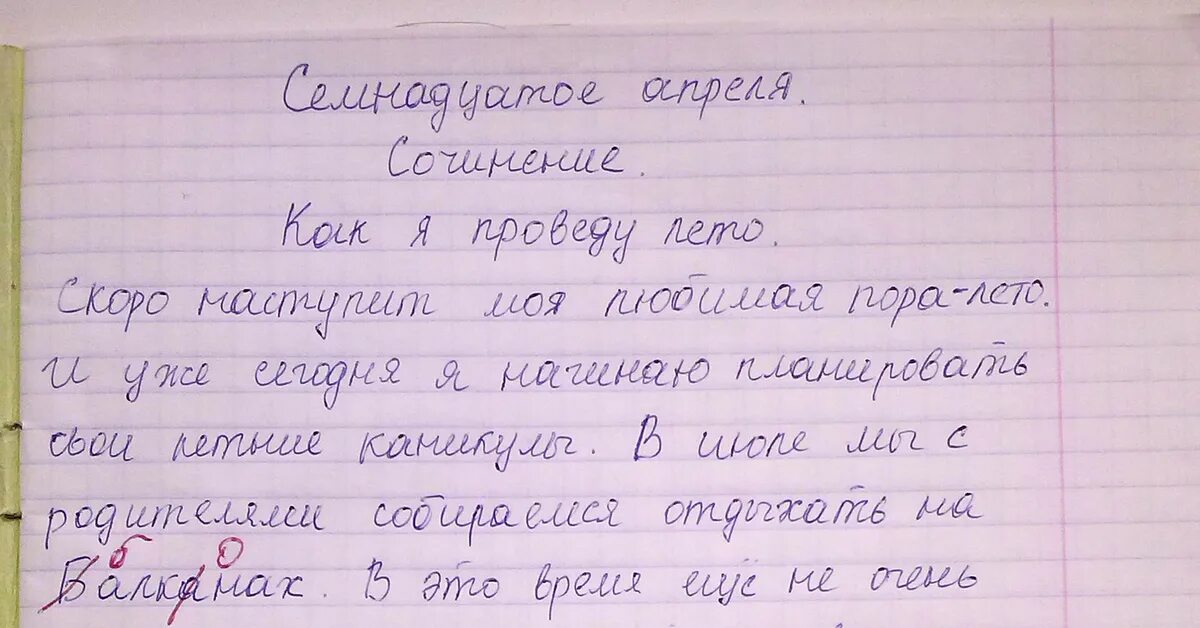 Семнадцатое апреля.
Сочинение.
Как я проведу лето.
Скоро наступит моя любимая пора-лето.
И уже сегодня я начинаю планировать
свои летние каникулы. В июле мы с
родителями собираемся отдыхать на
б о
Балканах. В это время ещё не очень